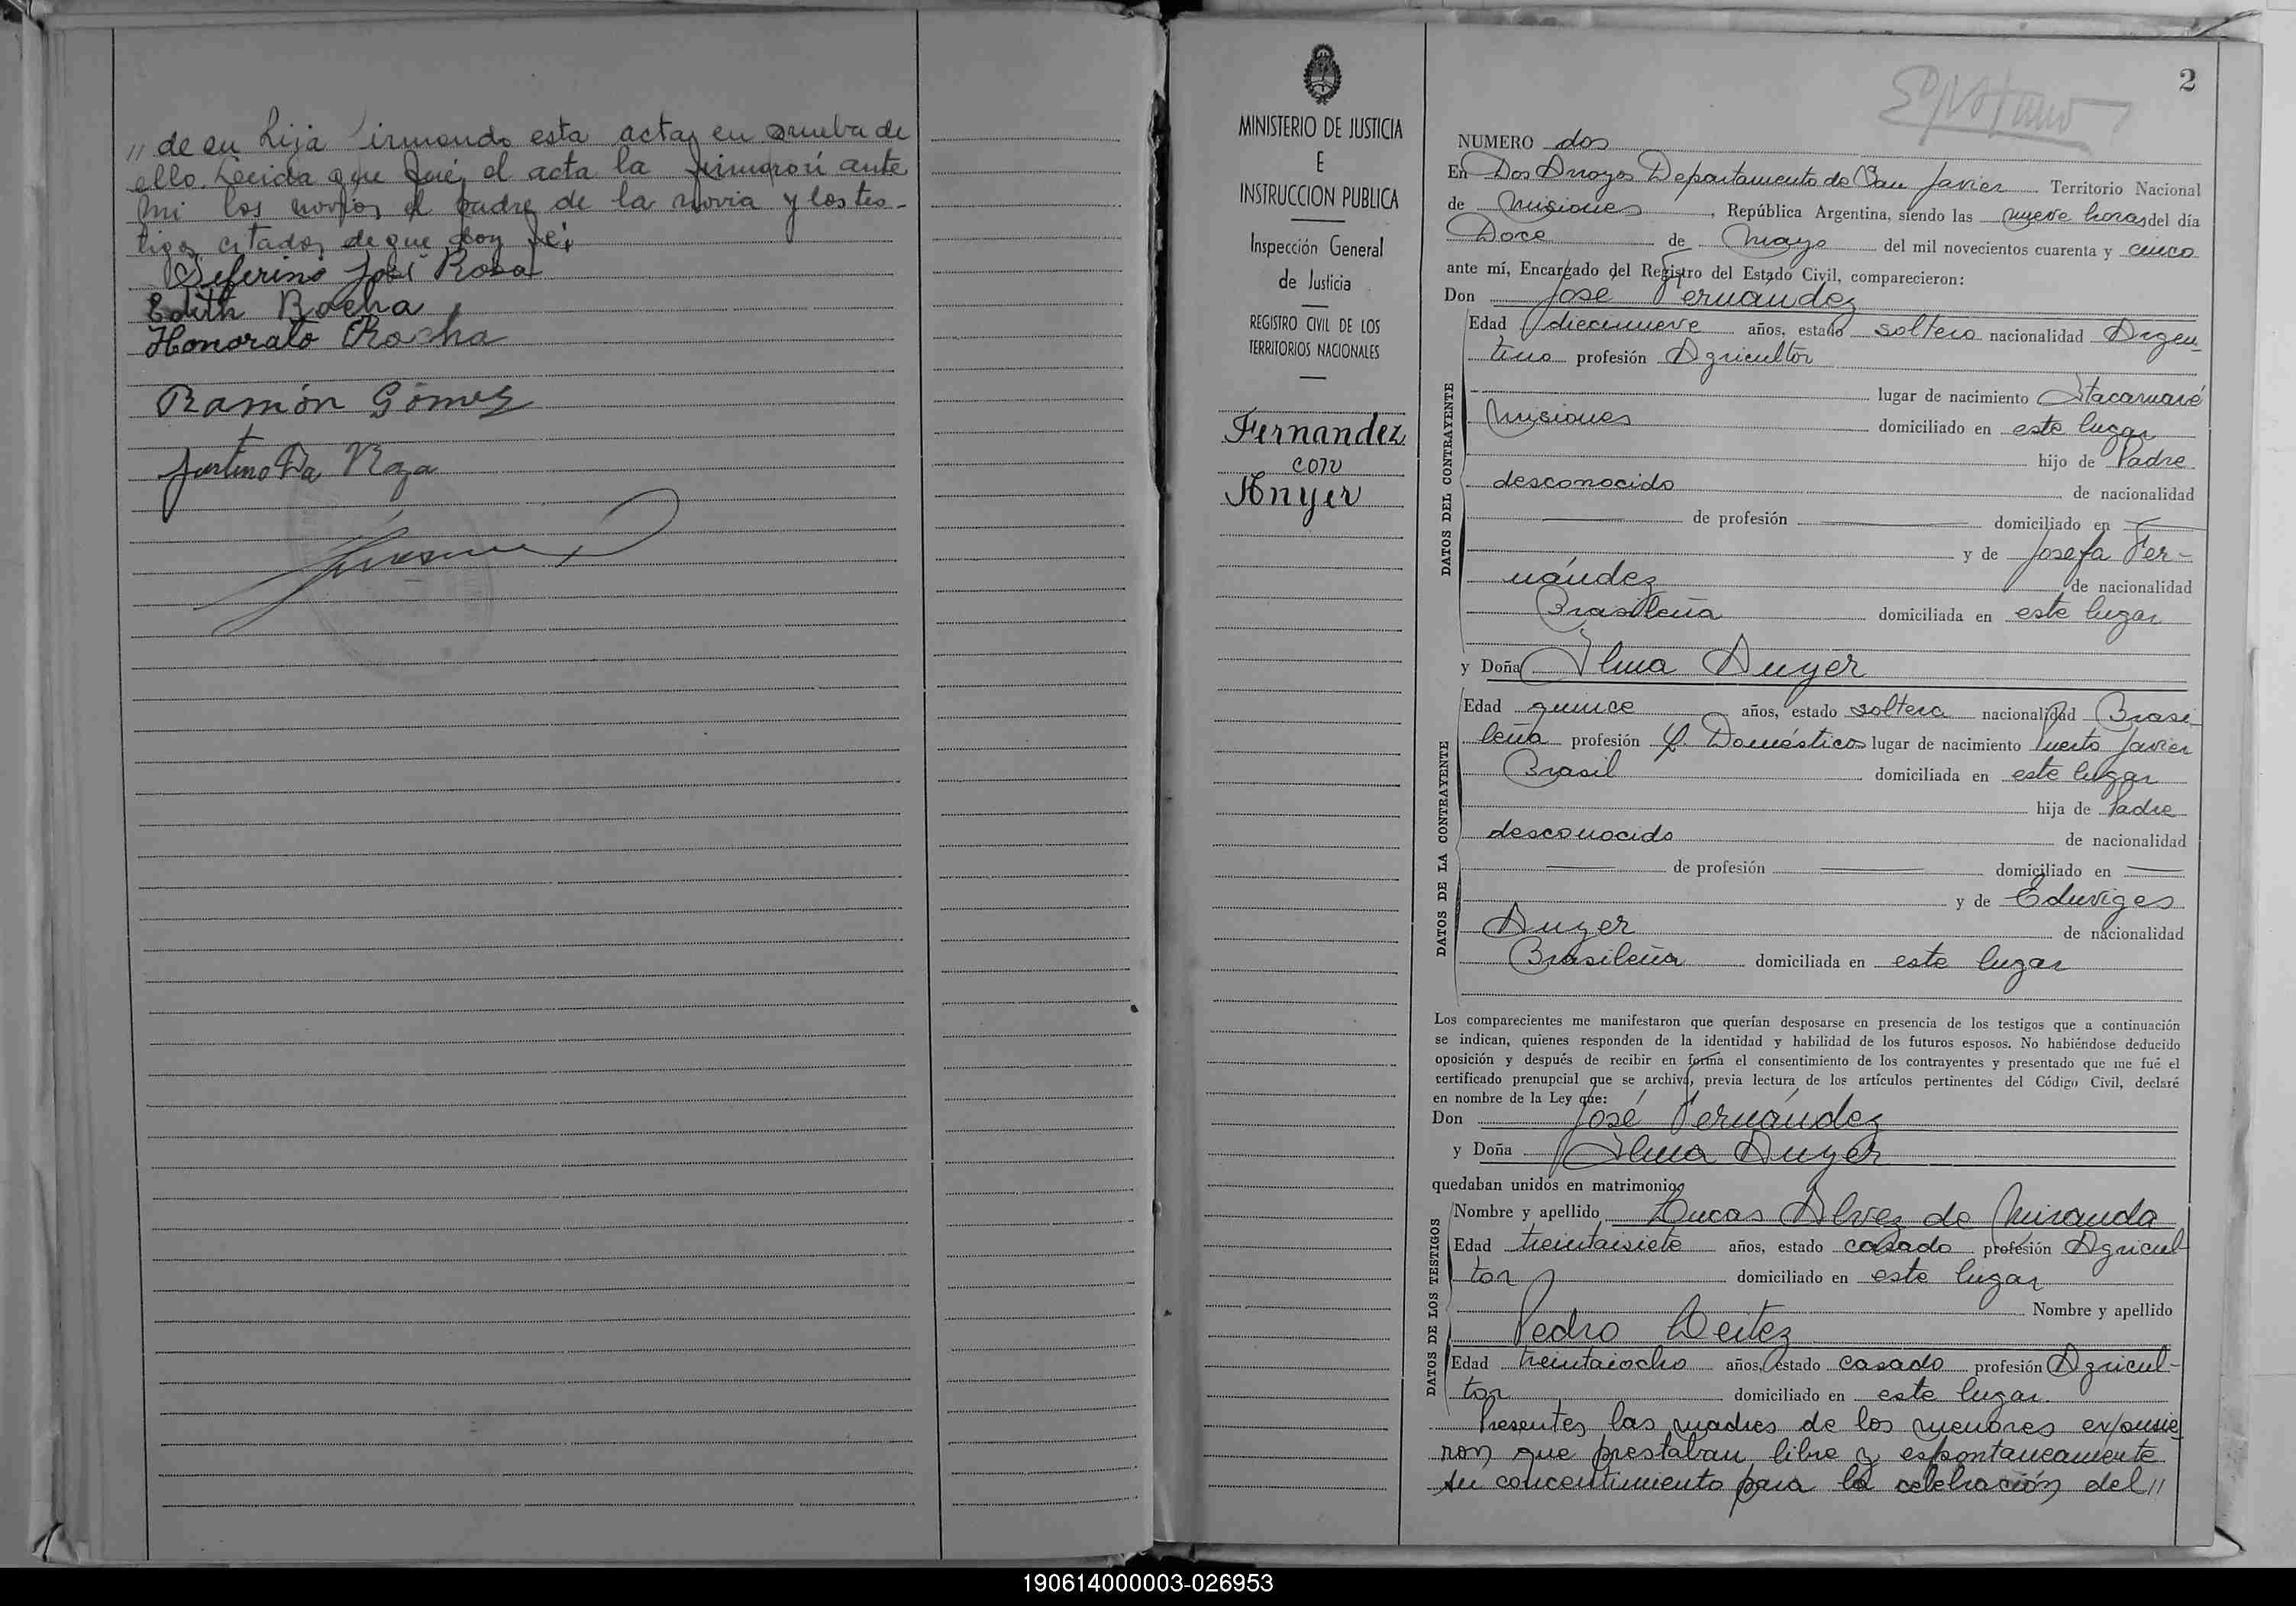 " de su hija firmando esta acta en prueba de
ello. Leida que fué el acta la firmaron ante
mi los novios el padre de la novia y los tes-
tigos citados de que doy fé:
Seferino José Rosa
Edith Rocha
Honorato Rocha
Ramón Gómez
Justino Da Roza
MINISTERIO DE JUSTICIA
E
INSTRUCCION PUBLICA
Inspección General
de Justicia
REGISTRO CIVIL DE LOS
TERRITORIOS NACIONALES
Fernandez
con
Anyer
2
NUMERO dos
En Dos Arroyos Departamento de San Javier Territorio Nacional
de Misiones, República Argentina, siendo las nueve horas del día
Doce de Mayo del mil novecientos cuarenta y cinco
ante mí, Encargado del Registro del Estado Civil, comparecieron:
Don José Fernández
DATOS DEL CONTRAYENTE
Edad diecinueve años, estado soltero nacionalidad Argen-
tino profesión Agricultor
lugar de nacimiento Itacaruaré
Misiones domiciliado en este lugar
hijo de Padre
desconocido de nacionalidad
de profesión domiciliado en
y de Josefa Fer-
nández de nacionalidad
Brasileña domiciliada en este lugar
y Doña Ilma Anyer
DATOS DE LA CONTRAYENTE
Edad quince años, estado soltera nacionalidad Brasi-
leña profesión Q. Domésticos lugar de nacimiento Puerto Javier
Brasil domiciliada en este lugar
hija de Padre
desconocido de nacionalidad
de profesión domiciliado en
y de Eduviges
Anyer de nacionalidad
Brasileña domiciliada en este lugar
Los comparecientes me manifestaron que querían desposarse en presencia de los testigos que a continuación
se indican, quienes responden de la identidad y habilidad de los futuros esposos. No habiéndose deducido
oposición y después de recibir en forma el consentimiento de los contrayentes y presentado que me fué el
certificado prenupcial que se archiva, previa lectura de los artículos pertinentes del Código Civil, declaré
en nombre de la Ley que:
Don José Fernández
y Doña Ilma Anyer
quedaban unidos en matrimonio
DATOS DE LOS TESTIGOS
Nombre y apellido Lucas Alvez de Miranda
Edad treintaisiete años, estado casado profesión Agricul-
tor domiciliado en este lugar
Nombre y apellido
Pedro Leitez
Edad treintaiocho años, estado casado profesión Agricul-
tor domiciliado en este lugar.
Presentes las madres de los menores expusie
ron que prestaban libre y espontaneamente
su concentimiento para la celebración del "
190614000003-026953